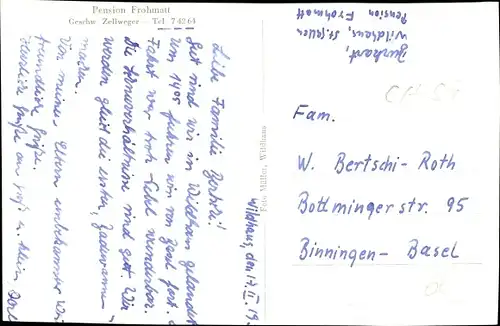 Pension Frohmatt
Geschw. Zellweger — Tel 7 42 64
Wildhaus, den 17. II. 19
Liebe Familie Bertschi!
Gut sind wir in Wildhaus gelandet.
Um 14⁰⁵ fuhren wir von Basel fort. Die
Fahrt war trotz Nebel wunderbar.
Die Schneeverhältnisse sind gut. Wir
werden gleich die ersten
machen.
Von meinen Eltern unbekannter Weise
freundliche Grüsse.
Herzliche Grüsse an gross u. klein,
Foto Müller, Wildhaus
Burkart,
Pension Frohmatt
Wildhaus, St. Gallen
Fam.
W. Bertschi-Roth
Bottmingerstr. 95
Binningen-Basel